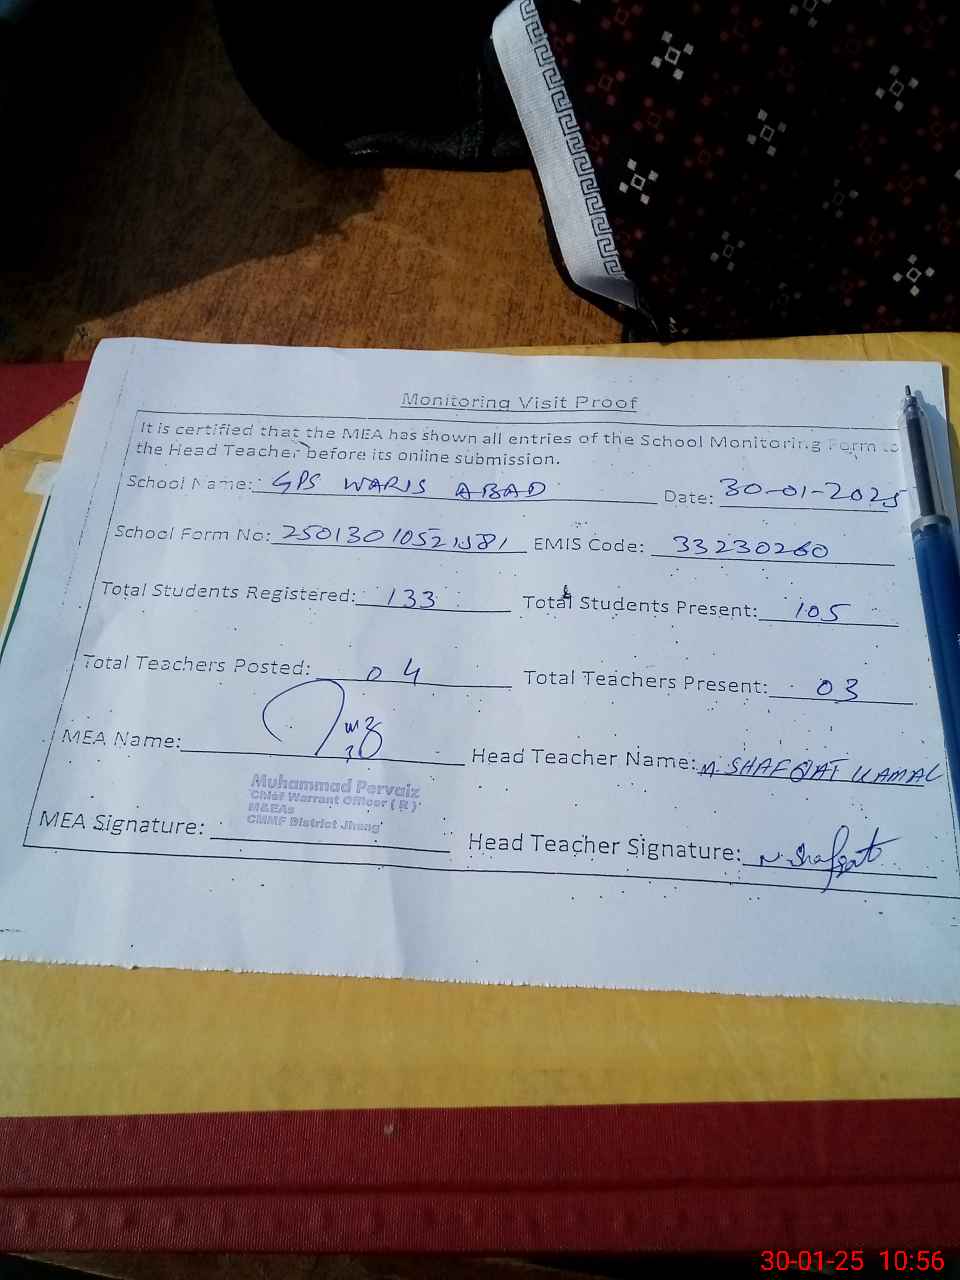 Monitoring Visit Proof
It is certified that the MEA has shown all entries of the School Monitoring Form to
the Head Teacher before its online submission.
School Name: GPS WARIS ABAD Date: 30-01-2025
School Form No: EMIS Code: 33230260
Total Students Registered: 133 Total Students Present: 105
Total Teachers Posted: 04 Total Teachers Present: 03
MEA Name: Head Teacher Name: M. SHAFQAT KAMAL
Muhammad Pervaiz
Chief Warrant Officer ( R )
M&EAs
CMMF District Jhang
MEA Signature: Head Teacher Signature: M. Shafqat
30-01-25 10:56